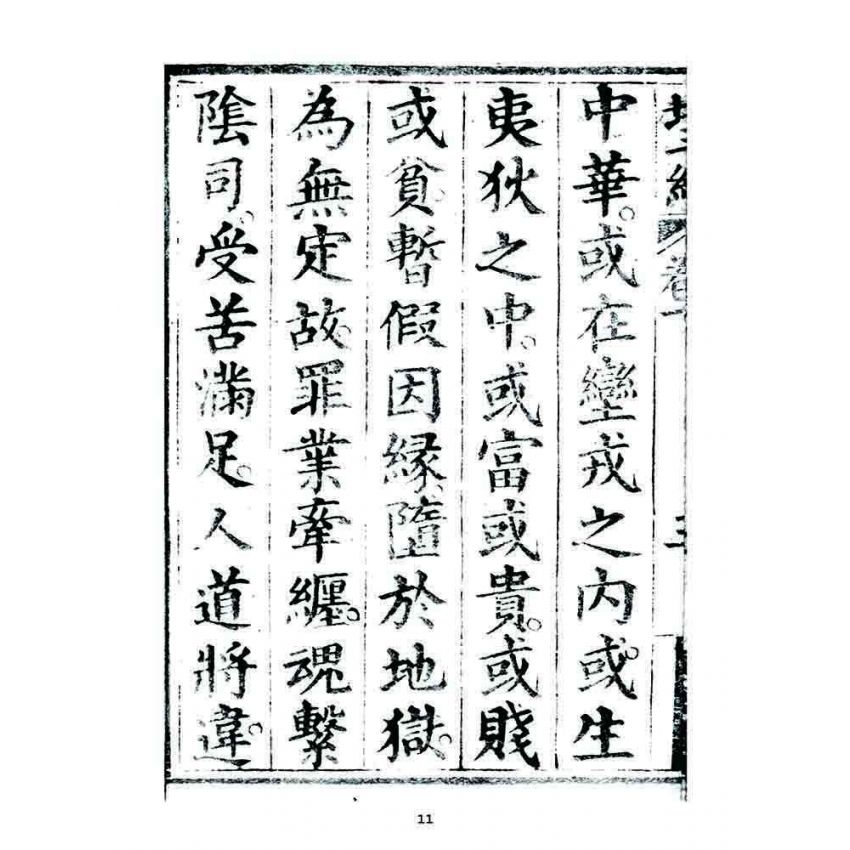 中華。或在蠻戎之内。或生
夷狄之中。或富或貴。或賤
或貧。暫假因縁。墮於地獄。
為無定故。罪業牽纏。魂繫
陰司。受苦滿足。人道將違。
11